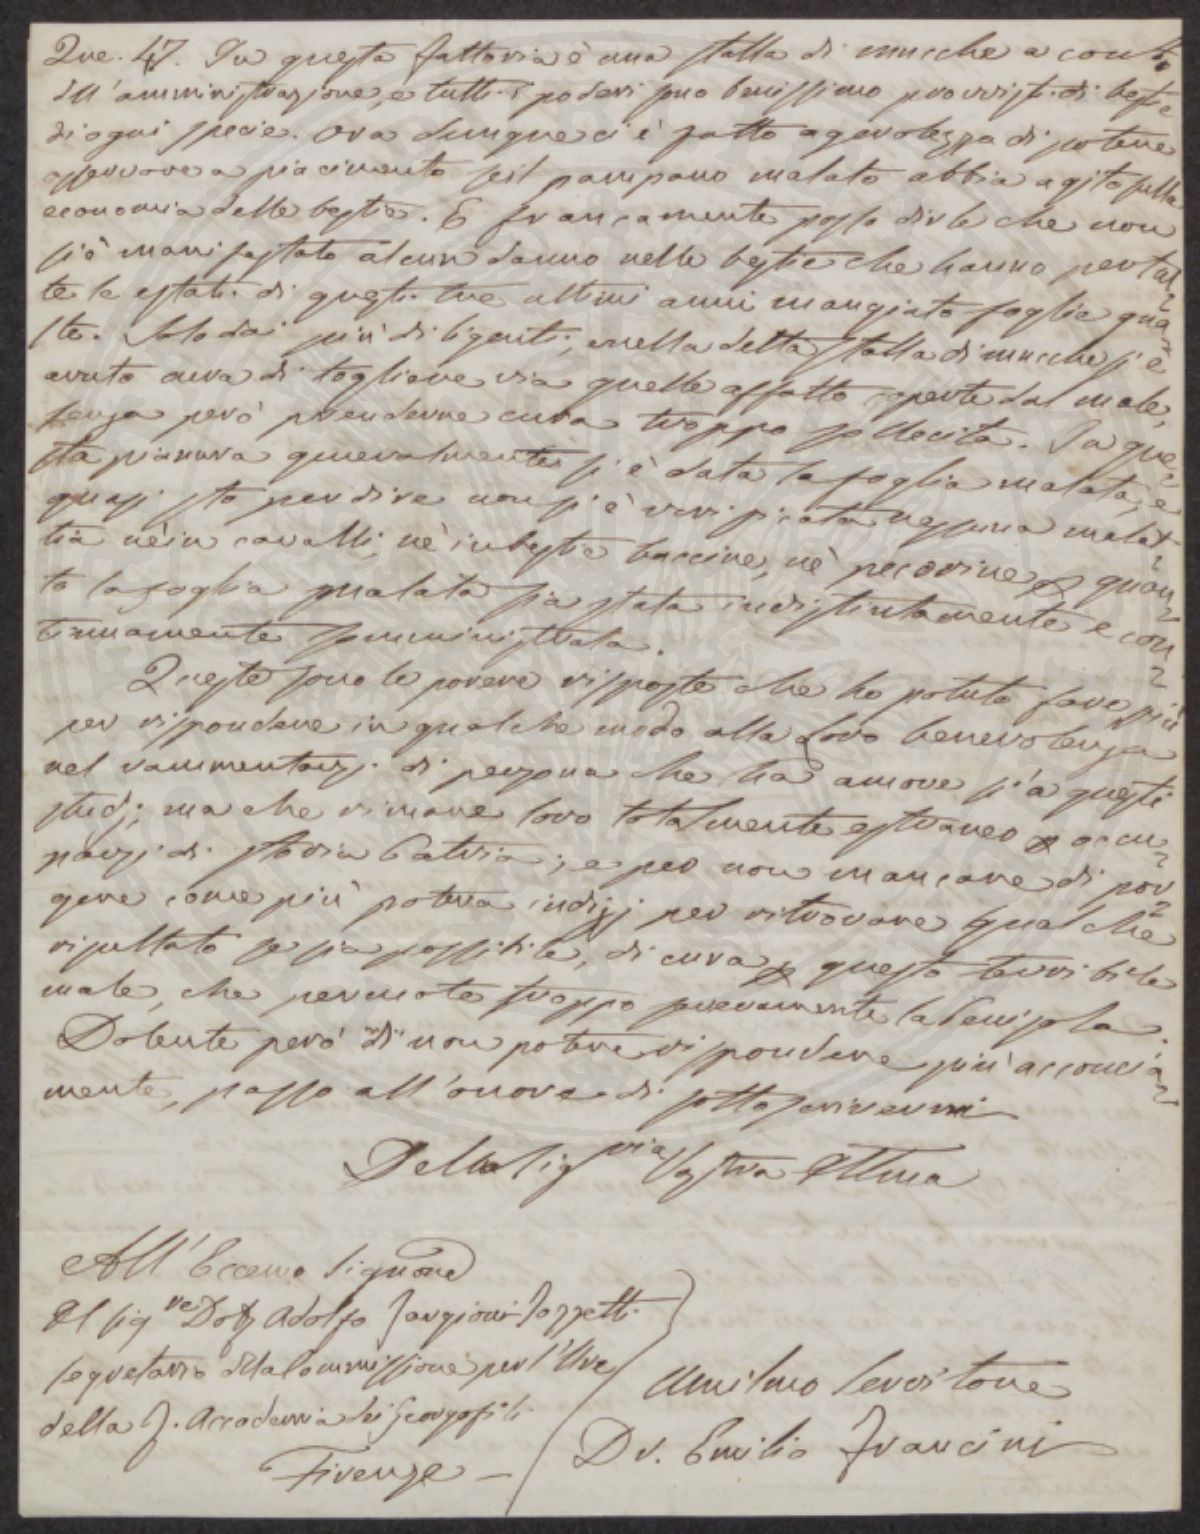 Que. 47. In questa fattoria è una stalla di mucche a conto
dell'amministrazione, e tutti i poderi sono benissimo provvisti di bestie
di ogni specie. Ora dunque ci è fatto agevolezza di potere
osservare a piacimento se il pampano malato abbia agito sulla
economia delle bestie. E francamente posso dirle che non
si è manifestato alcun danno nelle bestie che hanno per tut-
te le estati di questi tre ultimi anni mangiato foglie gua-
ste. Solo dai più diligenti, e nella detta stalla di mucche si è
avuto cura di togliere via quelle affatto coperte dal male,
senza però prenderne cura troppo sollecita. In que-
sta pianura generalmente si è data la foglia malata, e
quasi sto per dire non si è verificata nessuna malat-
tia nè in cavalli, nè in bestie baccine, nè pecorine quan-
to la foglia malata sia stata indistintamente e con-
tinuamente somministrata.
Queste sono le povere risposte che ho potuto fare, più
per rispondere in qualche modo alla Loro benevolenza
nel rammentarsi di persona che ha amore sì a questi
studj; ma che rimane loro totalmente estraneo occu-
parsi di storia Patria; e per non mancare di por-
gere come più poteva indizj per ritrovare qualche
risultato se sia possibile, di cura questo terribile
male, che percuote troppo severamente la Penisola.
Dolente però di non potere rispondere più acconcia-
mente, passo all'onore di sottoscrivermi
Della Sig.ria Vostra Illma
All'Eccemo Signore
Il Sig.re Dott Adolfo Targioni-Tozzetti
Segretario della Commissione per l'Uve
della I. Accademia dei Georgofili
Firenze —
Umilmo Servitore
Dr. Emilio Francini